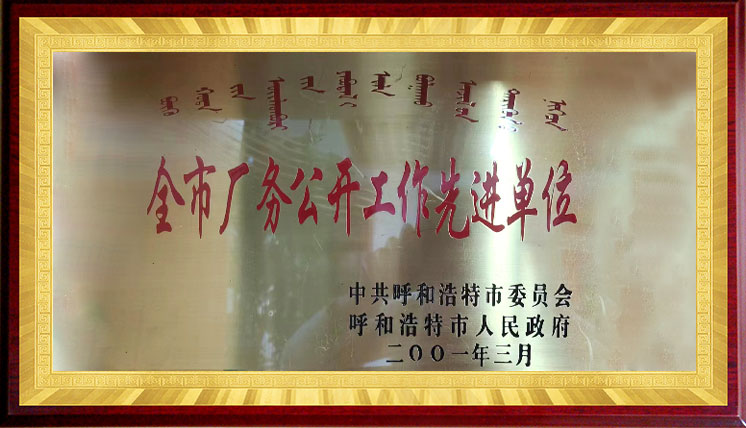 全市厂务公开工作先进单位
中共呼和浩特市委员会
呼和浩特市人民政府
二〇〇一年三月